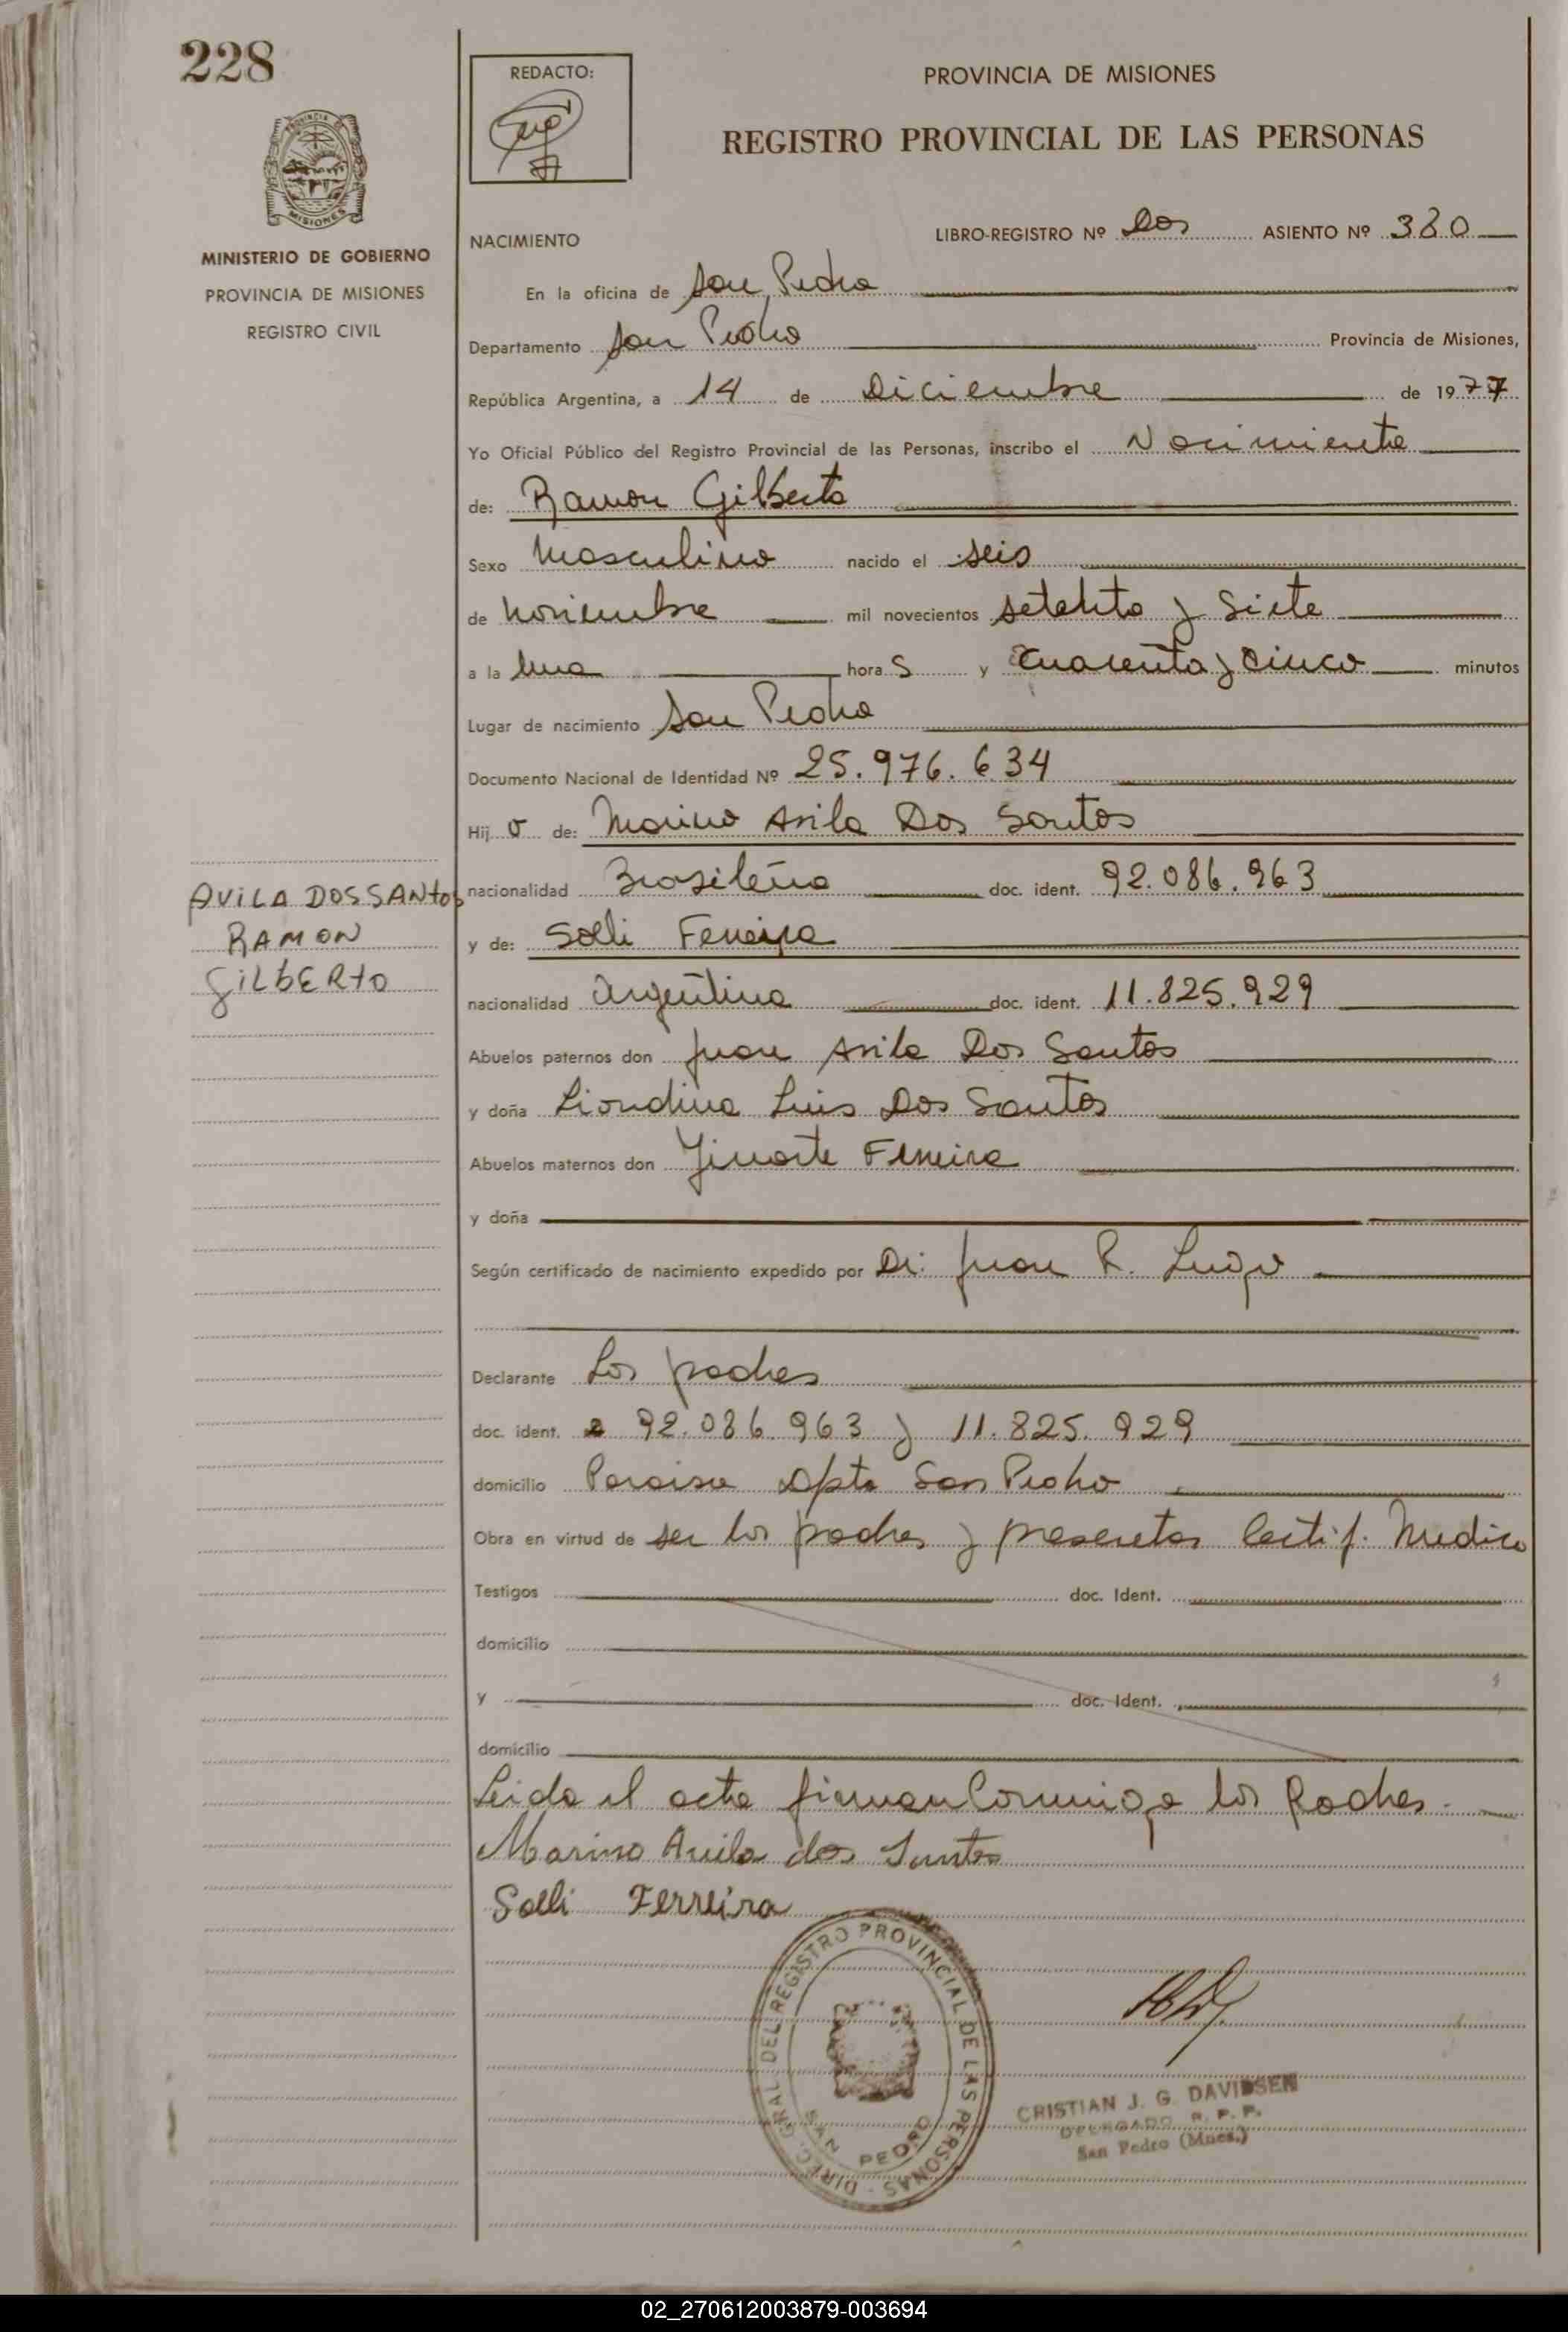 228
REDACTO:
PROVINCIA DE MISIONES
REGISTRO PROVINCIAL DE LAS PERSONAS
PROVINCIA DE
MISIONES
MINISTERIO DE GOBIERNO
PROVINCIA DE MISIONES
REGISTRO CIVIL
NACIMIENTO
LIBRO-REGISTRO Nº Dos ASIENTO Nº 380
En la oficina de San Pedro
Departamento San Pedro Provincia de Misiones,
República Argentina, a 14 de Diciembre de 1977
Yo Oficial Público del Registro Provincial de las Personas, inscribo el Nacimiento
de: Ramon Gilberto
Sexo Masculino nacido el seis
de Noviembre mil novecientos setenta y Siete
a la Una hora s y Cuarenta y Cinco minutos
Lugar de nacimiento San Pedro
Documento Nacional de Identidad Nº 25.976.634
Hij o de: Marino Avila Dos Santos
AVILA DOS SANTOS
RAMON
GILBERTO
nacionalidad Brasileña doc. ident. 92.086.963
y de: Solli Ferreira
nacionalidad Argentina doc. ident. 11.825.929
Abuelos paternos don Juan Avila Dos Santos
y doña Liondina Luis Dos Santos
Abuelos maternos don Ferreira
y doña
Según certificado de nacimiento expedido por Dr. Juan R.
Declarante Los padres
doc. ident. 92.086.963 y 11.825.929
domicilio Paraiso Dpto San Pedro
Obra en virtud de ser los padres y presentar Certif. Medico
Testigos doc. Ident.
domicilio
y doc. Ident.
domicilio
Leida el acta firman Conmigo los Padres.
Marino Avila dos Santos
Solli Ferreira
DIREC. GRAL. DEL REGISTRO PROVINCIAL DE LAS PERSONAS
SAN PEDRO
CRISTIAN J. G. DAVIDSEN
DELEGADO R. P. P.
San Pedro (Mnes.)
02_270612003879-003694